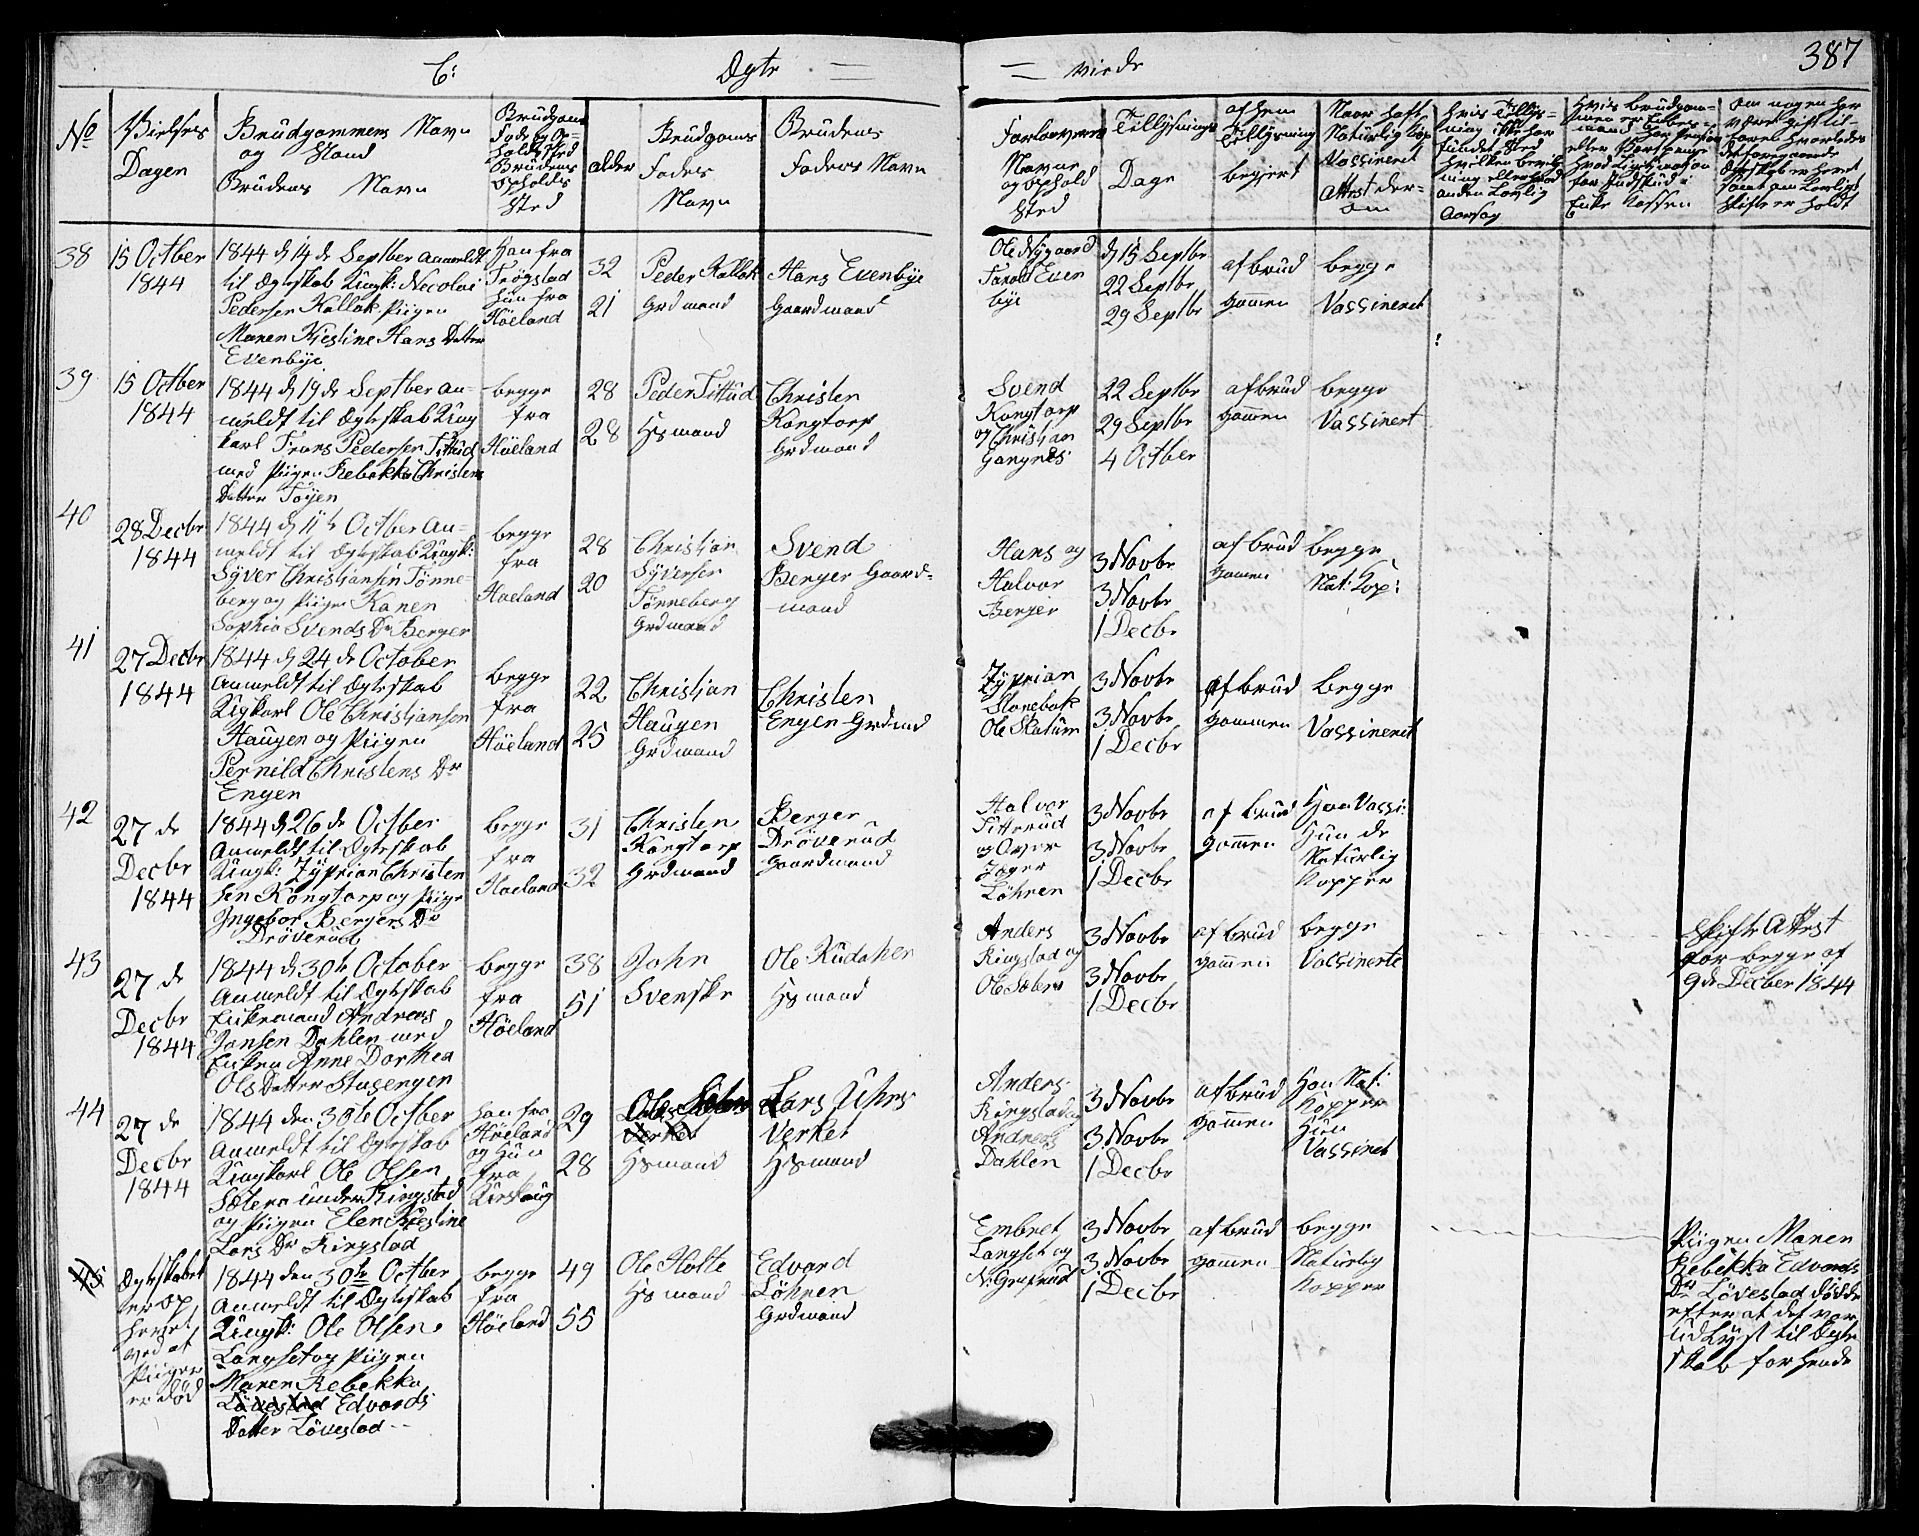 C: Ægte =
= viede 387
No
Vielses
Dagen
Brudgommens Navn
og Stand
Brudens Navn
Brudgoms
Fode og Op-
holdssted
Brudens
Opholds
Sted
alder
Brudgoms
Faders
Navn
Brudens
Faders Navn
Forlovernes
Navne
og ophold
Sted
Tillysnings
Dage
af hem
Tillysning
begjert
Naar haft
Naturlig Kop
Vassineret
Attest der-
om
Hvis Tillys-
ning ikke har
fundet Sted
hvilken bevil-
ning eller hvad
anden Lovlig
Aarsag
Hvis brudgom-
men er Enke-
mand
Enke Kassen
om nogen har
været gift til-
forn hvorledes
det foregaaende
Ægteskab er hevet
samt om Lovligt
Skifte er holdt
38
15 Octber
1844
1844 d 14 de Septber Anmeldt
til Ægteskab Ungk: Necolai
Pedersen Kallak Piigen
Maren Kiestine Hans Datter
Evenbye
Han fra
Trøgstad
hun fra
Høeland
32
21
Peder Kallak
Grdmand
Hans Evenbye
Gaardmand
Ole Nygaard
Even
bye
d 15 Septbr
22 Septbr
29 Septbr
af brud
gommen
begge
Vassineret
39
15 Octber
1844
1844 d 19 de Septber an-
meldt til Ægteskab Ung
karl Frans Pedersen Tittrud
med Piigen Rebekka Christens
Datter Toyen
begge
fra
Høeland
28
28
Peder Tittrud
Hsmand
Christen
Kongtorp
Grdmand
Svend
Kongtorp
og Christian
Gangnes
22 Septbr
29 Septbr
4 Octber
af brud
gommen
begge
Vassinert
40
28 Decbr
1844
1844 d 11te Octber An-
meldt til Ægteskab Ungk:
Syver Christjansen Tønne-
berg og Piigen Karen
Sophia Svends Dr Berger
begge
fra
Høeland
28
20
Christjan
Syversen
Tønneberg
Grdmand
Svend
Berger Gaard-
mand
Hans og
Halvor
Berger
3 Novbr
3 Novbr
1 Decbr
af brud
gommen
begge
Nat: Kop:
41
27 Decbr
1844
1844 d 24 de October
Anmeldt til Ægteskab
Ungkarl Ole Christjansen
Haugen og Piigen
Pernild Christens Dr
Engen
begge
fra
Høeland
22
25
Christjan
Haugen
Grdmand
Christen
Engen Grdmd
Zyprian
Slorebek
Ole Skatum
3 Novbr
3 Novbr
1 Decbr
af brud
gommen
begge
Vassineret
42
27 de
Decbr
1844
1844 d 26 de Octber
Anmeldt til Ægteskab
Ungk: Zyprian Christen
sen Kongtorp og Piige
Ingebor Bergers Dr
Drøverud
begge
fra
Høeland
31
32
Christen
Kongtorp
Grdmand
Berger
Drøverud
Gaardmand
Halvor
Titterud
og Over
Jæger
Løhren
3 Novbr
3 Novbr
1 Decbr
af brud
gommen
Han Vassi:
Hun de
Naturlig
Kopper
43
27 de
Decbr
1844
1844 d 30te October
Anmeldt til Ægteskab
Enkemand Andreas
Jansen Dahlen med
Enken Anne Dorthea
Ols Datter Stusengen
begge
fra
Høeland
38
51
John
Svenske
Ole Rudaker
Hsmand
Anders
Ringstad og
Ole Sætern
3 Novbr
3 Novbr
1 Decbr
af brud
gommen
begge
Vassinerte
Skifte Attest
for begge af
9 de Decber 1844
44
27 de
Decbr
1844
1844 den 30te Octber
Anmeldt til Ægteskab
Ungkarl Ole Olsen
Sætern under Ringstad
og Piigen Elen Kiestine
Lars Dr Ringstad
Han fra
Høeland
og Hun
fra
Urskoug
29
28
Ole Sætern
Verket
Hsmand
Lars
Verket
Hsmand
Anders
Ringstad og
Andreas
Dahlen
3 Novbr
3 Novbr
1 Decbr
af brud
gommen
Han Nat:
Kopper
Hun
Vassinert
45
Ægteskabet
er op
hevet
ved at
Piigen
er død
1844 den 30te Octber
Anmeldt til Ægteskab
Ungk: Ole Olsen
Langset og Piigen
Maren Rebekka
Løvestad Edvards
Datter Løvestad
begge
fra
Høeland
49
55
Ole Holte
Hsmand
Edvard
Løhren
Grdmand
Embret
Langset og
N: Grufrud
3 Novbr
3 Novbr
1 Decbr
af brud
gommen
begge
Naturlig
Kopper
Piigen Maren
Rebekka Edvards
Dr Løvestad døde
efter at det var
udlyst til Ægte
skab for hende